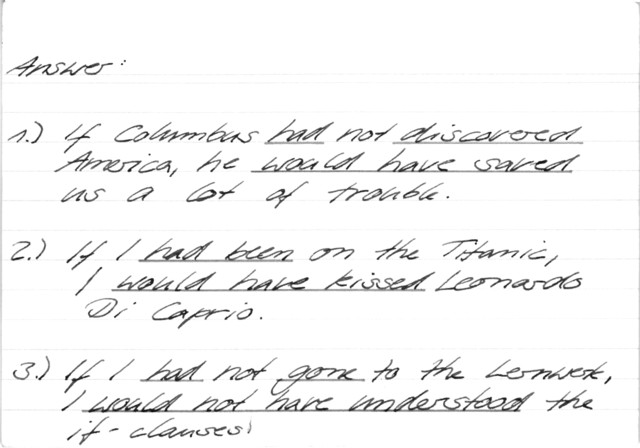 Answer:
1.) If Columbus had not discovered
America, he would have saved
us a lot of trouble.
2.) If I had been on the Titanic,
I would have kissed Leonardo
Di Caprio.
3.) If I had not gone to the Lernwerk,
I would not have understood the
if-clauses!